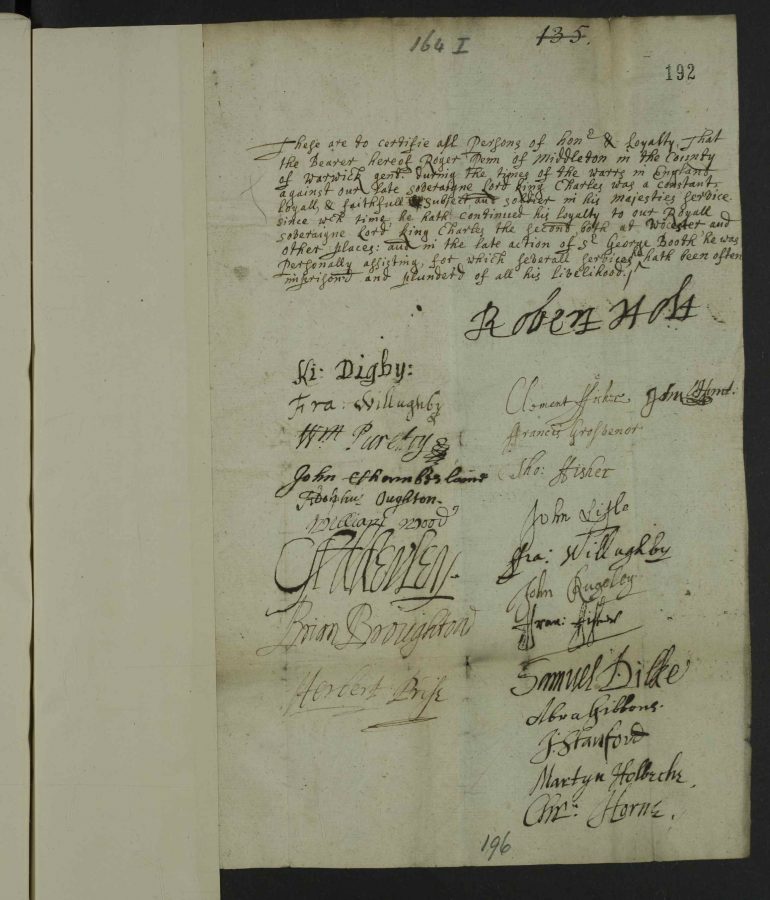 164 I
135.
192
These are to certifie all Persons of honr & Loyalty That
the Bearer hereof Roger Penn of Middleton in the County
of Warwick gent. during the times of the warrs in England
against our Late soveraigne Lord King Charles was a constant,
loyall, & faithfull subject and soldier in his majesties service
since wch time he hath continued his loyalty to our Royall
soveraigne Lord King Charles the second, both at Worcester and
other places: and in the late action of Sr George Booth he was
Personally assisting, for which severall services hath been often
imprisond and plunderd of all his livelihood.
Robert Holt
Ki: Digby:
Fra: Willughby
Wm Purefoy
John Chamberlaine
Adolphus Oughton
William Wood
Brian Broughton
Clement Fisher
Francis Grosvenor
Tho: Fisher
John Lisle
Fra: Willughby
John Rugeley
Fran: Fisher
Samuel Dilke
Abra Gibbons
J: Stanford
Martyn Holbeche
Chrr: Horne.
196